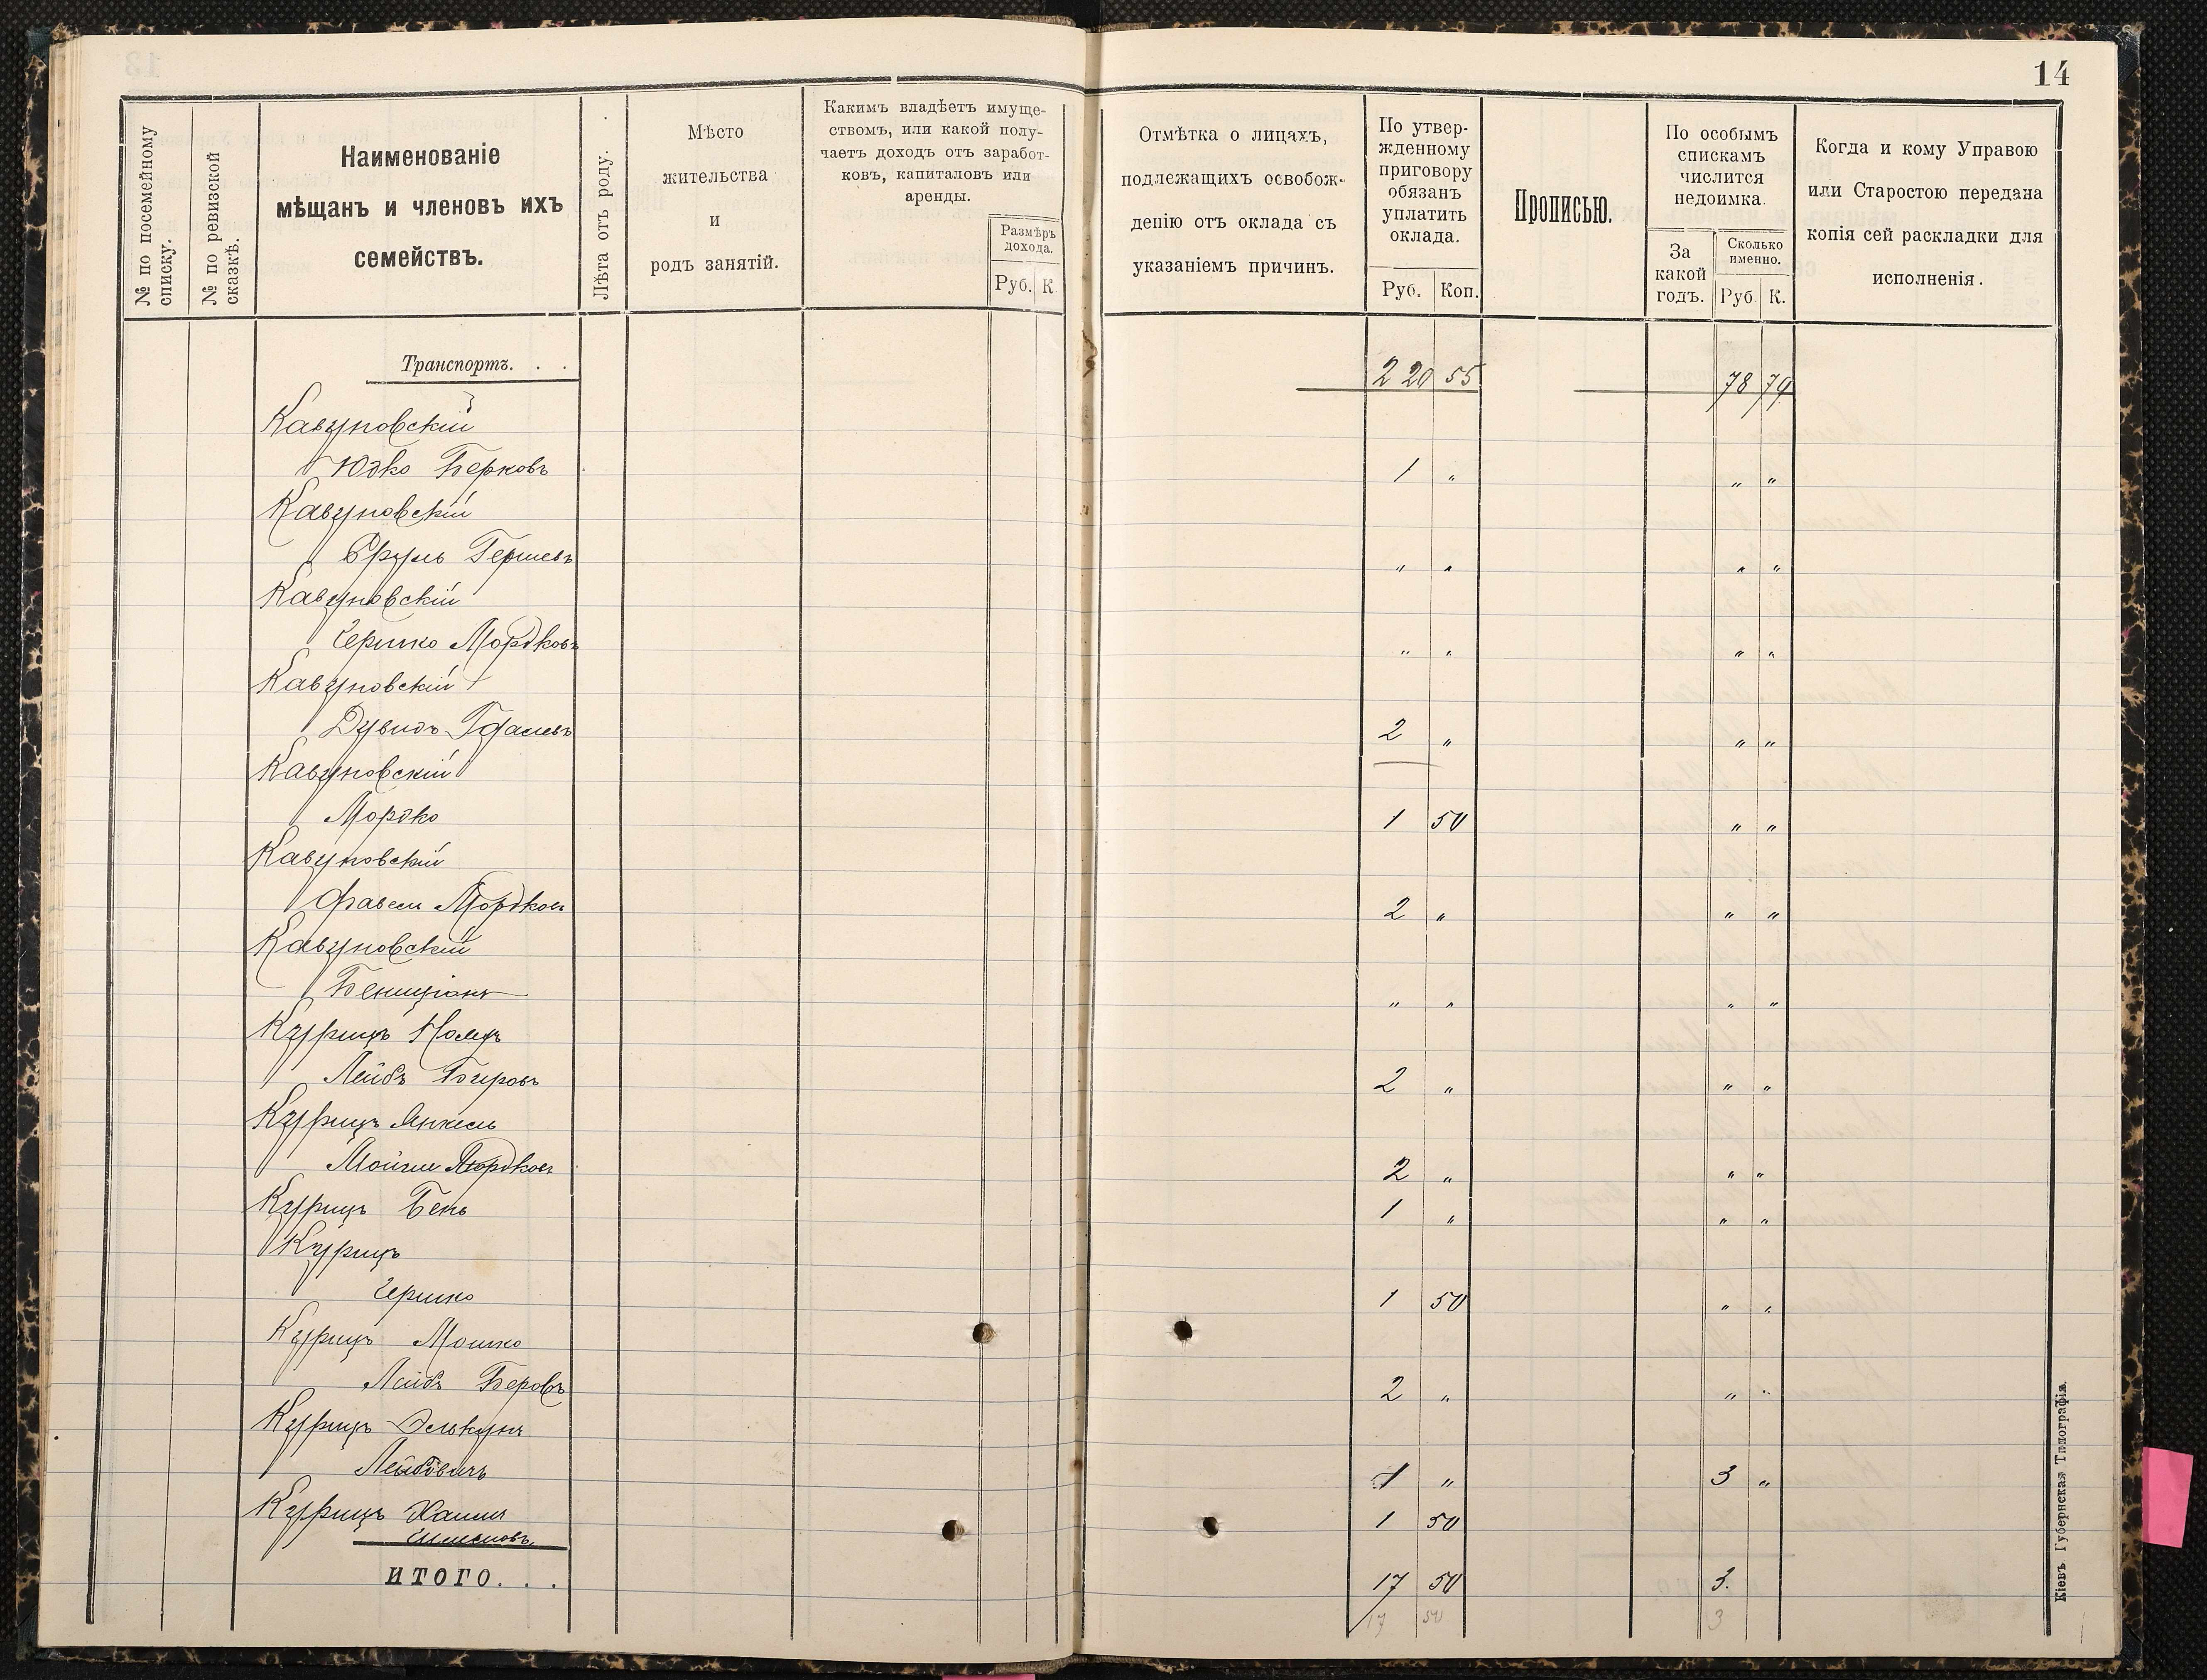 14
№ по посемейному списку.
№ по ревизской сказкѣ.
Наименованіе
мѣщанъ и членовъ ихъ
семействъ.
Лѣта отъ роду.
Мѣсто
жительства
и
родъ занятій.
Какимъ владѣетъ имуще-
ствомъ, или какой полу-
чаетъ доходъ отъ заработ-
ковъ, капиталовъ или
аренды.
Размѣръ
дохода.
Руб. К.
Отмѣтка о лицахъ,
подлежащихъ освобож-
денію отъ оклада съ
указаніемъ причинъ.
По утвер-
жденному
приговору
обязанъ
уплатить
оклада.
Руб. Коп.
Прописью.
По особымъ
спискамъ
числится
недоимка.
За
какой
годъ.
Сколько
именно.
Руб К.
Когда и кому Управою
или Старостою передана
копія сей раскладки для
исполненія.
Транспортъ. . . 220 55 78 79
Кавуновскій
Юдко Берковъ 1 " " "
Кавуновскій
Сруль Гершевъ " " " "
Кавуновскій
Гершко Мордковъ " " " "
Кавуновскій
Дувидъ 2 " " "
Кавуновскій
Мордко 1 50 " "
Кавуновскій
Мордков 2 " " "
Кавуновскій
Бенціонъ " " " "
Курицъ
Лейбъ Беровъ 2 " " "
Курицъ Янкель
Мордков 2 " " "
Курицъ Бень 1 " " "
Курицъ
Гершко 1 50 " "
Курицъ Мошко
Лейбъ Беровъ 2 " " "
Курицъ Элькунъ
Лейбовичъ 1 " 3 "
Курицъ Хаимъ 1 50
ИТОГО. . . 17 50 3.
17 50 3
Кіевъ Губернская Типографія.